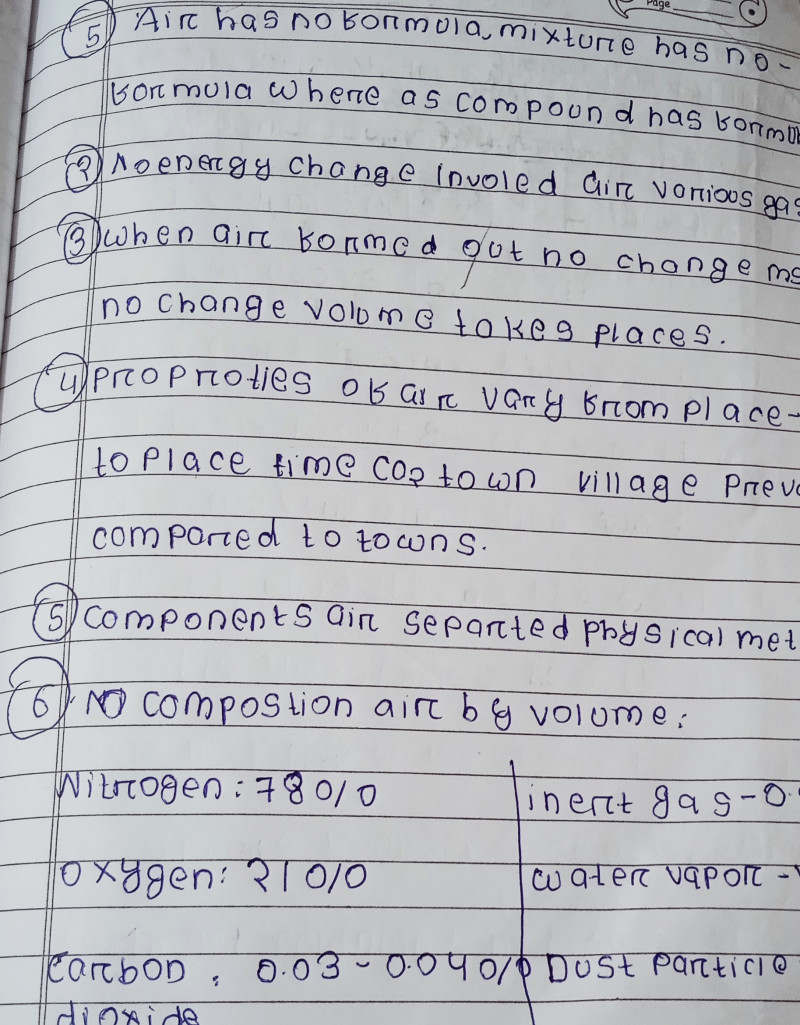 Page
5 Air has no formula, mixture has no-
formula where as compound has formu
2 No energy change involed air various gas
3 when air formed out no change
no change volume takes places.
4 Proproties of air vary from place-
to place time CO2 town village
compared to towns.
5 components air separted physical met
6. NO compostion air by volume:
Nitrogen: 78 0/0 inert gas-0.
oxygen: 21 0/0 water vapor -
carbon : 0.03-0.04 0/0 Dust particle
dioxide